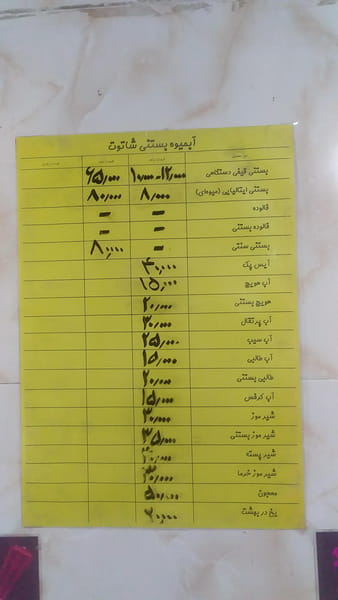 آبمیوه بستنی شاتوت
بستنی قیفی دستگاهی ۱۰,۰۰۰-۱۲,۰۰۰ ۶۵,۰۰۰
بستنی ایتالیایی (میوه‌ای) ۸,۰۰۰ ۸۰,۰۰۰
فالوده - -
فالوده بستنی - -
بستنی سنتی - ۸۰,۰۰۰
آیس پک ۴۰,۰۰۰
آب هویج ۱۵,۰۰۰
هویج بستنی ۲۰,۰۰۰
آب پرتقال ۳۰,۰۰۰
آب سیب ۲۵,۰۰۰
آب طالبی ۱۵,۰۰۰
طالبی بستنی ۲۰,۰۰۰
آب کرفس ۱۵,۰۰۰
شیر موز ۳۰,۰۰۰
شیر موز بستنی ۳۵,۰۰۰
شیر پسته ۴۰,۰۰۰
شیر موز خرما ۳۰,۰۰۰
معجون ۵۰,۰۰۰
یخ در بهشت ۲۰,۰۰۰